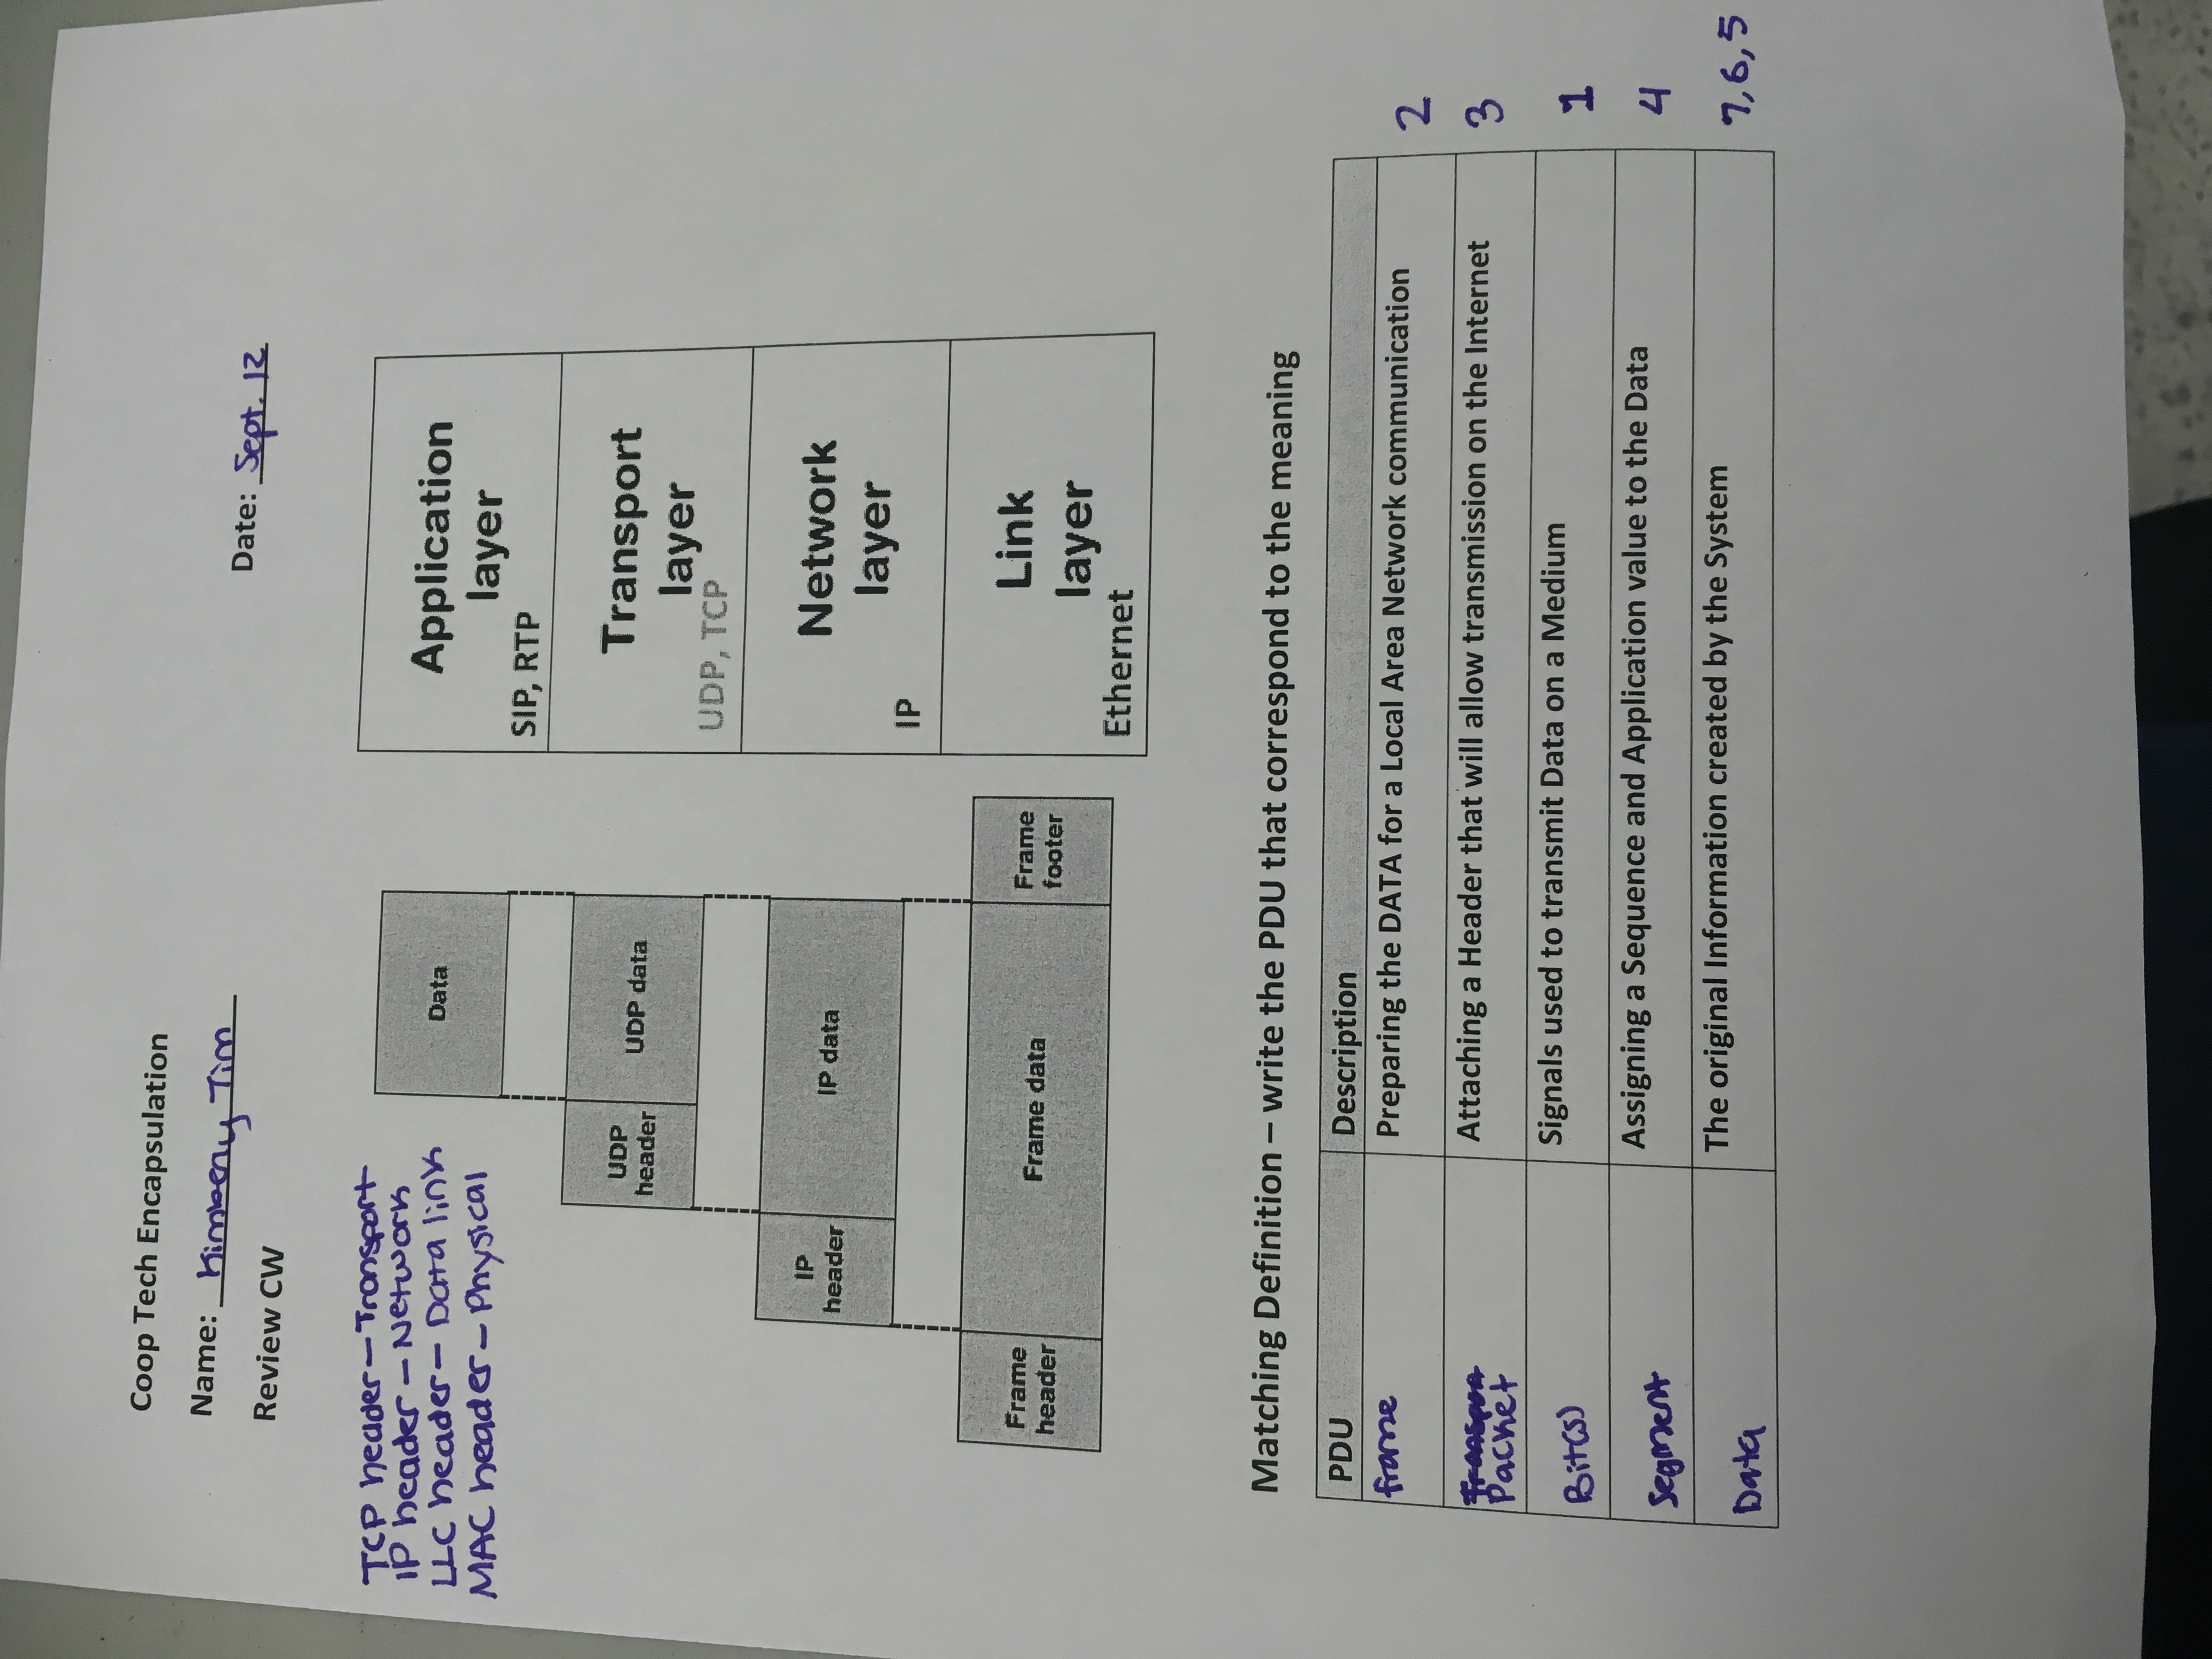 Coop Tech Encapsulation
Name: Kimberly Tim
Date: Sept. 12
Review CW
TCP header – Transport
IP header – Network
LLC header – Data link
MAC header – Physical
Data
UDP
header
UDP data
IP
header
IP data
Frame
header
Frame data
Frame
footer
Application
layer
SIP, RTP
Transport
layer
UDP, TCP
Network
layer
IP
Link
layer
Ethernet
Matching Definition – write the PDU that correspond to the meaning
PDU Description
frame Preparing the DATA for a Local Area Network communication 2
Transport
Packet Attaching a Header that will allow transmission on the Internet 3
Bit(s) Signals used to transmit Data on a Medium 1
Segment Assigning a Sequence and Application value to the Data 4
Data The original Information created by the System 7,6,5